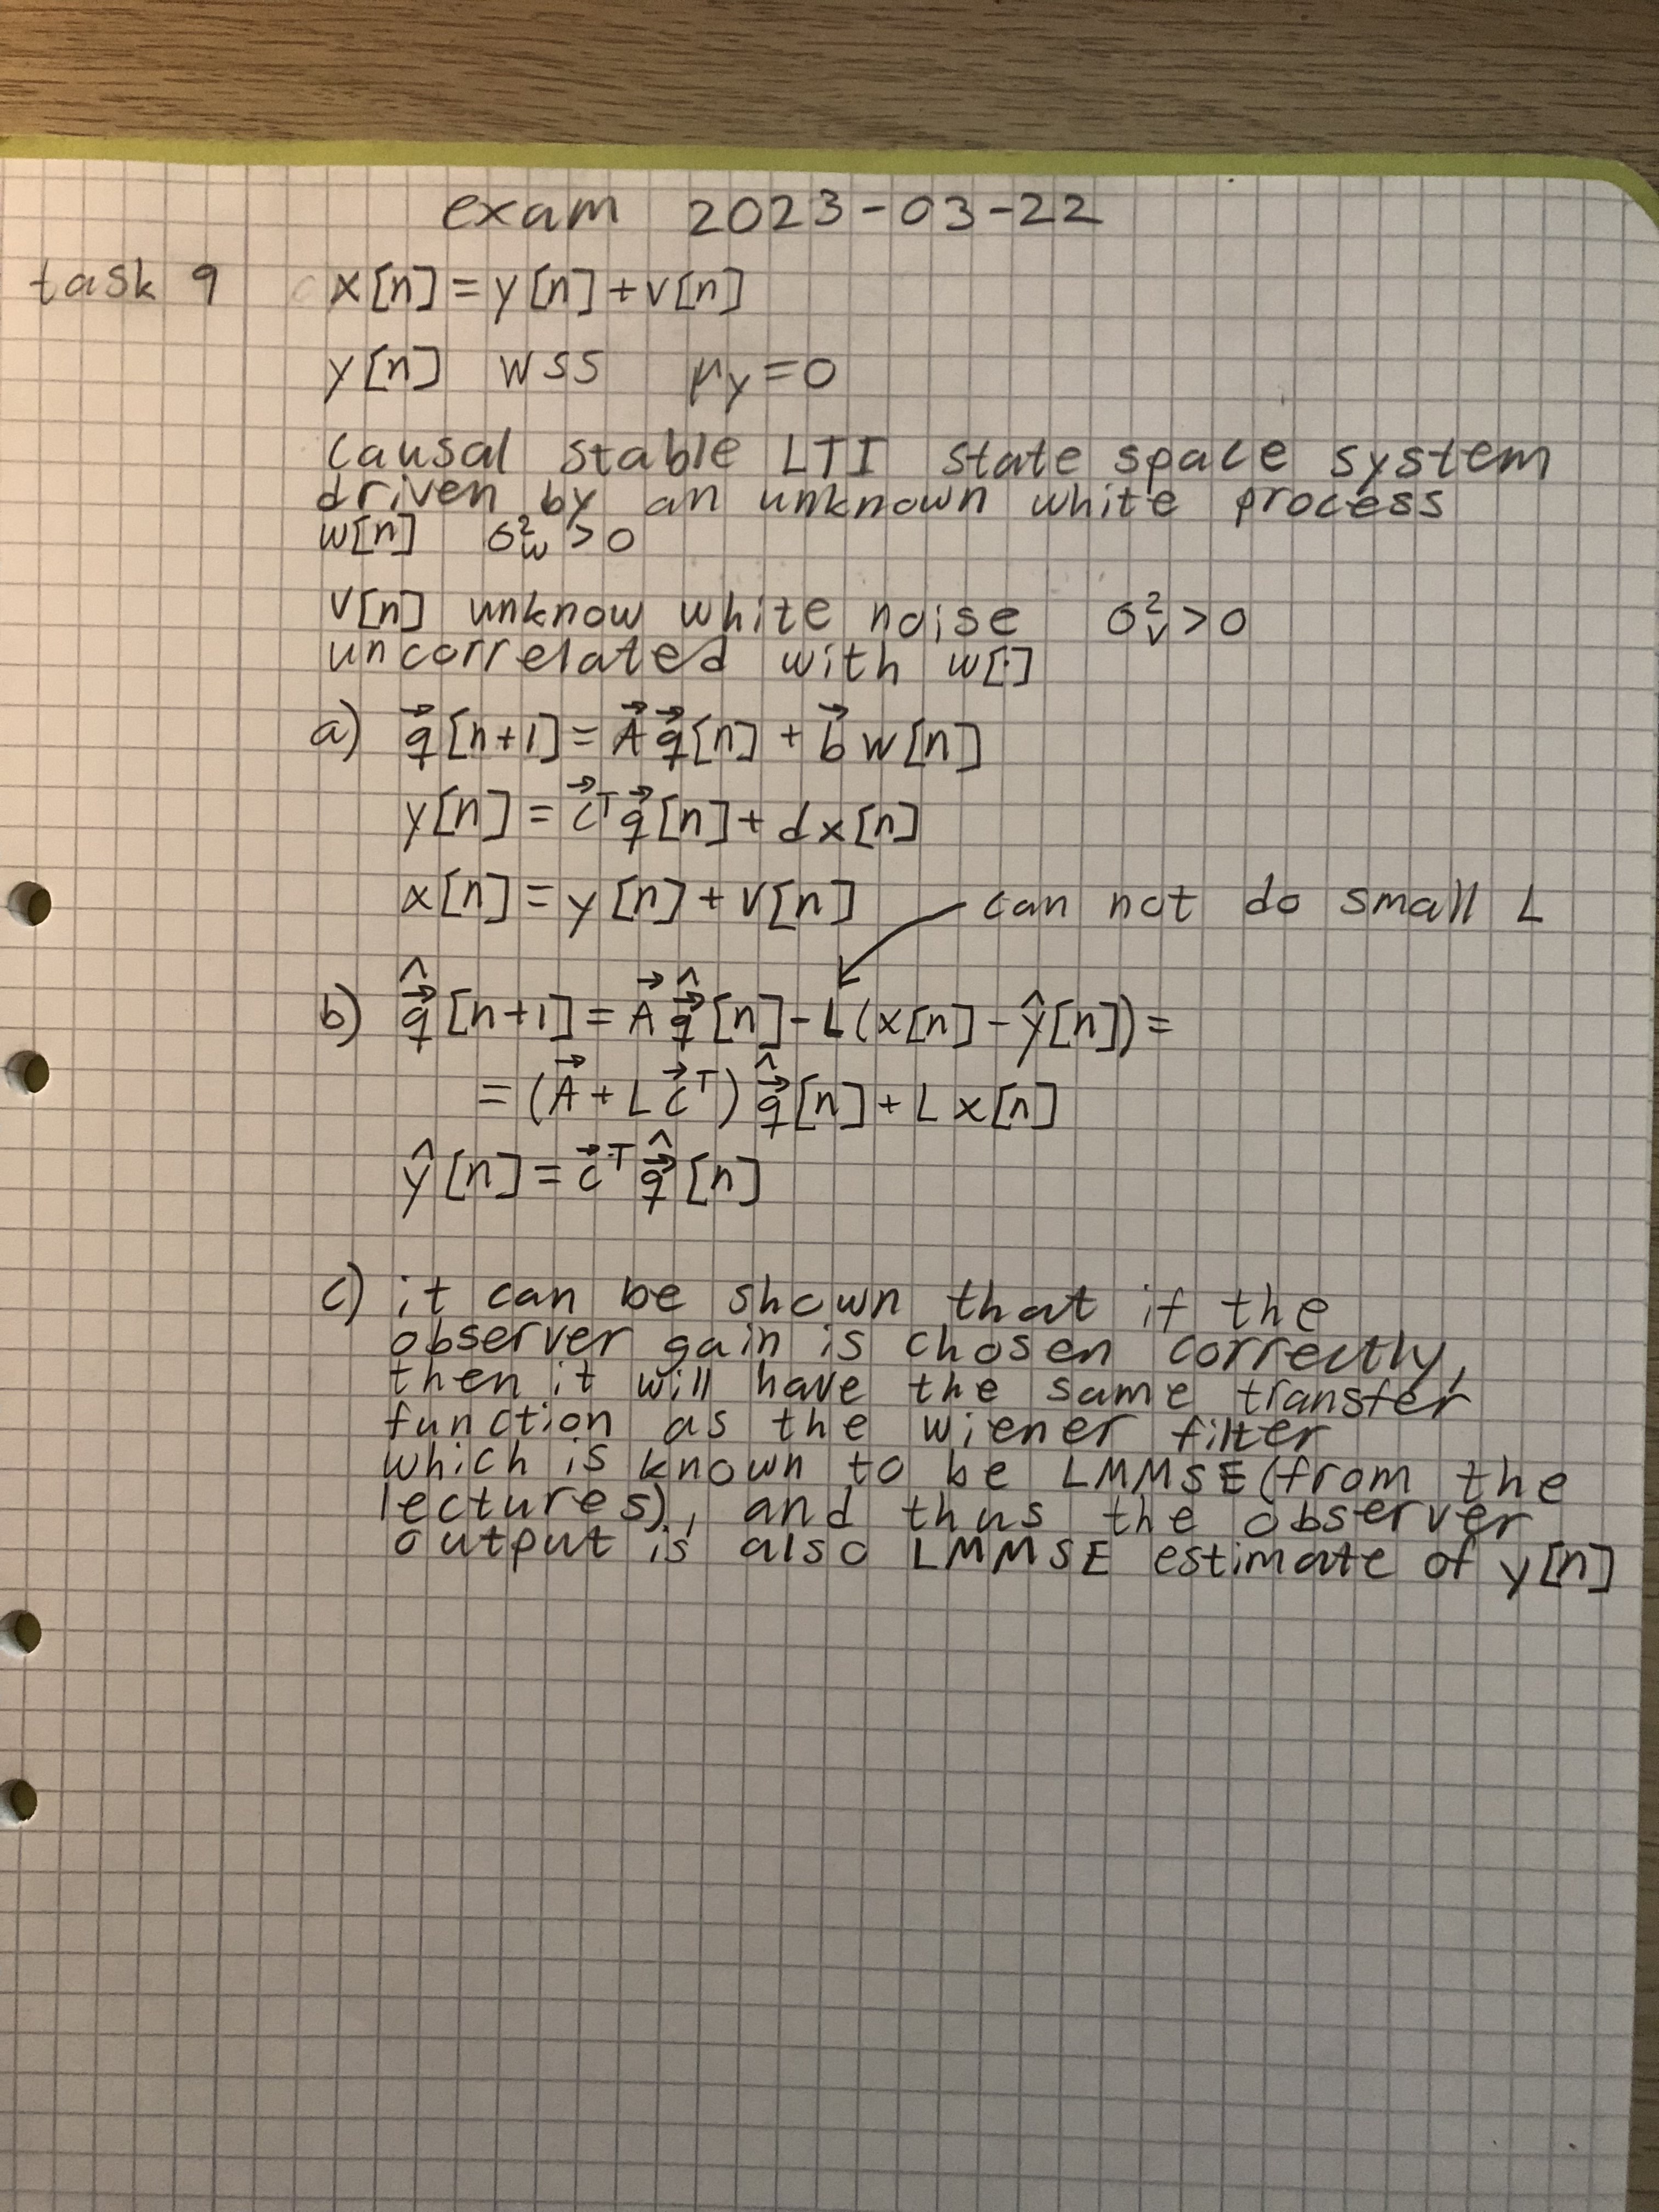 exam 2023-03-22
task 9 x[n]=y[n]+v[n]
y[n] WSS μy=0
causal stable LTI state space system
driven by an unknown white process
w[n] σ²w>0
v[n] unknow white noise σ²v>0
uncorrelated with w[·]
a) q⃗[n+1]=A⃗q⃗[n]+b⃗w[n]
y[n]=c⃗ᵀq⃗[n]+dx[n]
x[n]=y[n]+v[n] can not do small L
b) q⃗̂[n+1]=A⃗q⃗̂[n]-L(x[n]-ŷ[n])=
=(A⃗+Lc⃗ᵀ)q⃗̂[n]+Lx[n]
ŷ[n]=c⃗ᵀq⃗̂[n]
c) it can be shown that if the
observer gain is chosen correctly,
then it will have the same transfer
function as the wiener filter
which is known to be LMMSE (from the
lectures), and thus the observer
output is also LMMSE estimate of y[n]